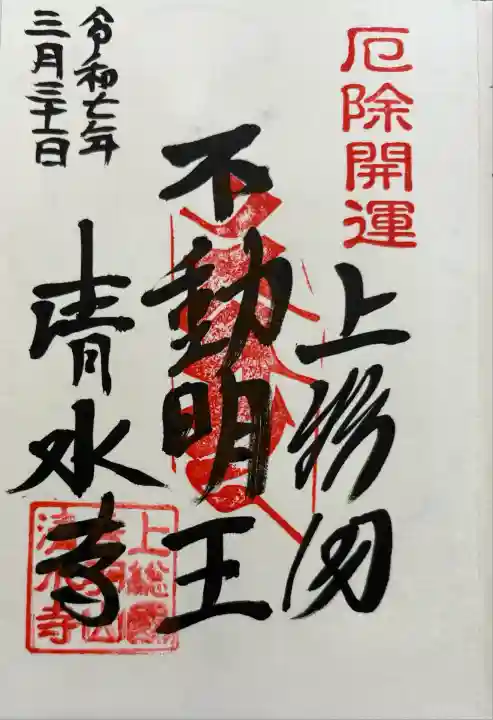 厄除開運
上総国
不動明王
清水寺
令和七年
三月三十一日
上総國
清水寺